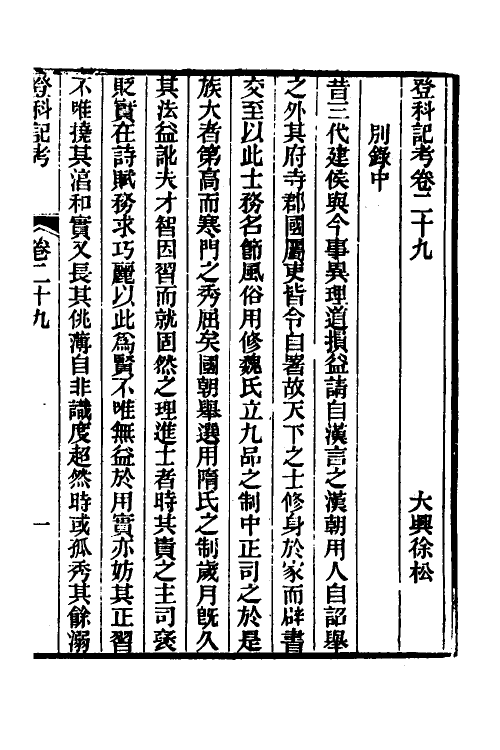 登科記考卷二十九
大興徐松
別錄中
昔三代建侯與今事異理道損益請自漢言之漢朝用人自詔舉
之外其府寺郡國屬吏皆令自署故天下之士修身於家而辟書
交至以此士務名節風俗用修魏氏立九品之制中正司之於是
族大者第高而寒門之秀屈矣國朝舉選用隋氏之制歲月旣久
其法益訛夫才智因習而就固然之理進士者時共貴之主司褒
貶實在詩賦務求巧麗以此爲賢不唯無益於用實亦妨其正習
不唯撓其淳和實又長其佻薄自非識度超然時或孤秀其餘溺
登科記考
卷二十九
一